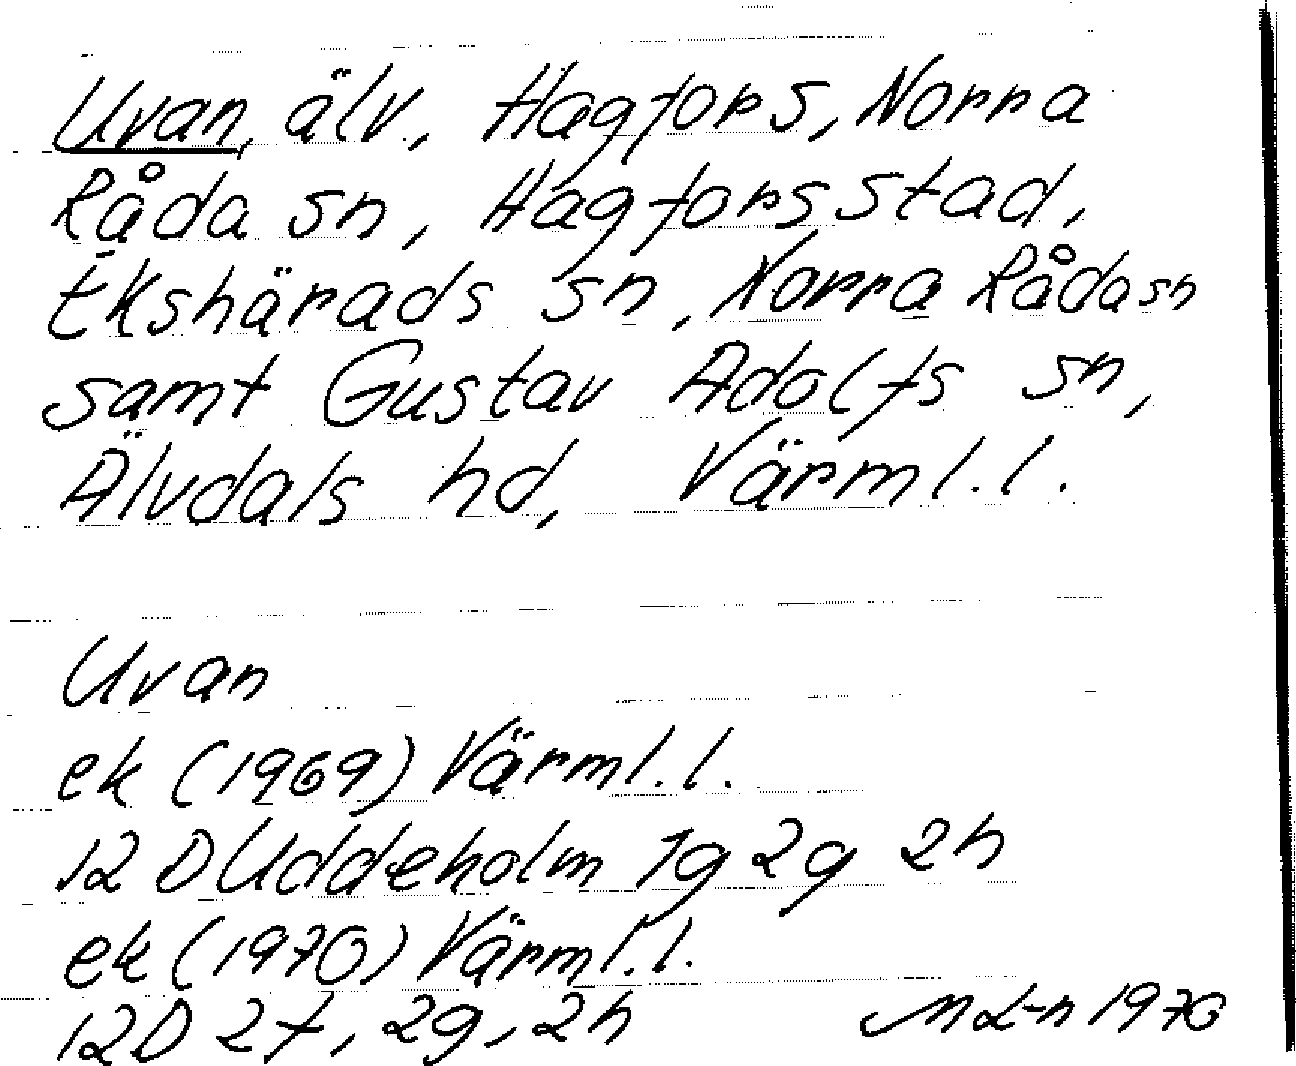 Uvan, älv, Hagfors, Norra
Råda sn, Hagfors stad,
Ekshärads sn, Norra Råda sn
samt Gustav Adolfs sn,
Älvdals hd, Värml. l.
Uvan
ek (1969) Värml. l.
12 D Uddeholm 1g 2g 2h
ek (1970) Värml. l.
12D 2f, 2g, 2h
1970